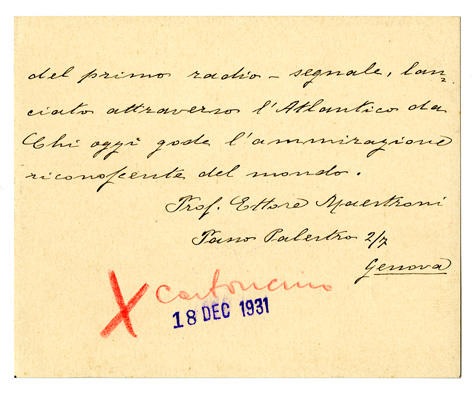 del primo radio-segnale, lan-
ciato attraverso l'Atlantico da
Chi oggi gode l'ammirazione
riconoscente del mondo.
Prof. Ettore Maestroni
Palestro 2/7
Genova
X Cartoncino
18 DEC 1931